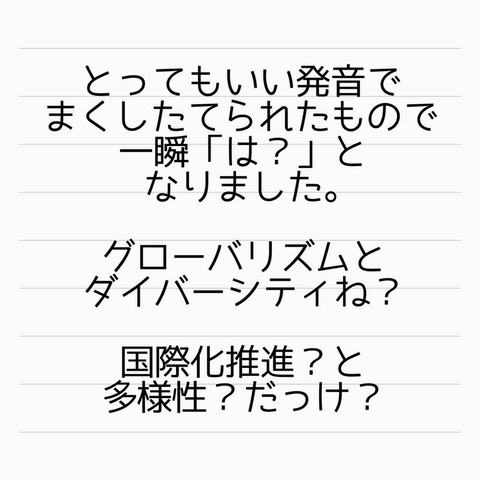 とってもいい発音で
まくしたてられたもので
一瞬「は？」と
なりました。
グローバリズムと
ダイバーシティね？
国際化推進？と
多様性？だっけ？